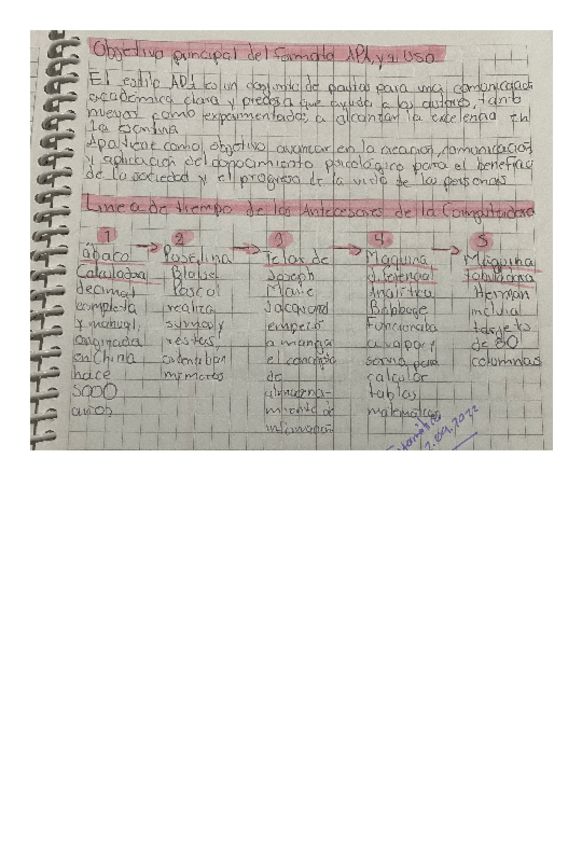 Objetivo principal del formato APA, y su uso
El estilo APA es un conjunto de pautas para una comunicación
académica clara y precisa que ayuda a los autores, tanto
nuevos como experimentados, a alcanzar la excelencia en
la escritura
Apa tiene como objetivo avanzar en la creación, comunicación
y aplicación del conocimiento psicológico para el beneficio
de la sociedad y el progreso de la vida de las personas
Linea de tiempo de los Antecesores de la Computadora
1
ábaco
Calculadora
decimal
completa
y manual,
originada
en China
hace
5000
años
2
Pascalina
Blaise
Pascal
realiza
sumas y
restas,
mayores
3
Telar de
Joseph
Marie
Jacquard
empezó
a maneja
el concepto
de
almacena-
miento de
información
4
Maquina
diferencial
Analitica
Babbage
Funcionaba
a vapor y
servia para
calcular
tablas
matemáticas
5
Máquina
tabuladora
Herman
tarjeta
de 80
columnas